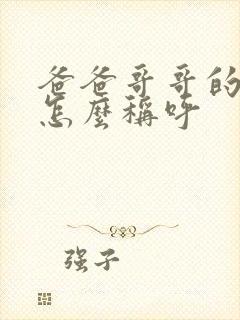 爸爸哥哥的
怎麼稱呼
强子